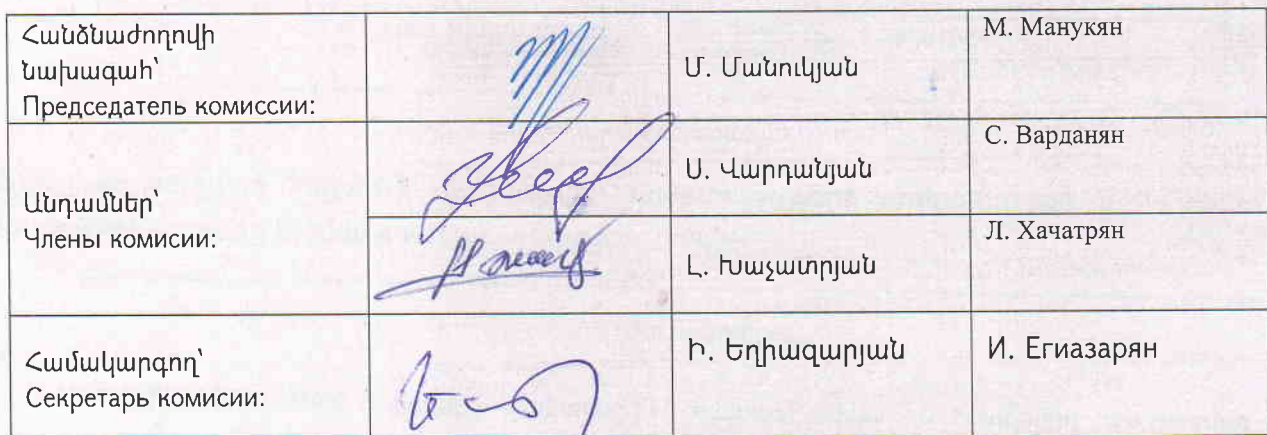 Հանձնաժողովի
նախագահ՝
Председатель комиссии:
Մ. Մանուկյան
М. Манукян
Անդամներ
Члены комисии:
Ս. Վարդանյան
С. Варданян
Լ. Խաչատրյան
Л. Хачатрян
Համակարգող՝
Секретарь комисии:
Ի. Եղիազարյան
И. Егиазарян